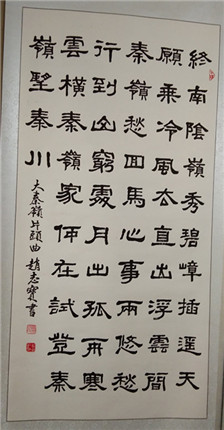 終南陰嶺秀碧嶂插遥天
願乘冷風去直出浮雲間
秦嶺愁回馬心事兩悠愁
行到山窮處月出孤舟寒
雲橫秦嶺家何在試登秦
嶺望秦川
大秦嶺片頭曲 趙志寶書